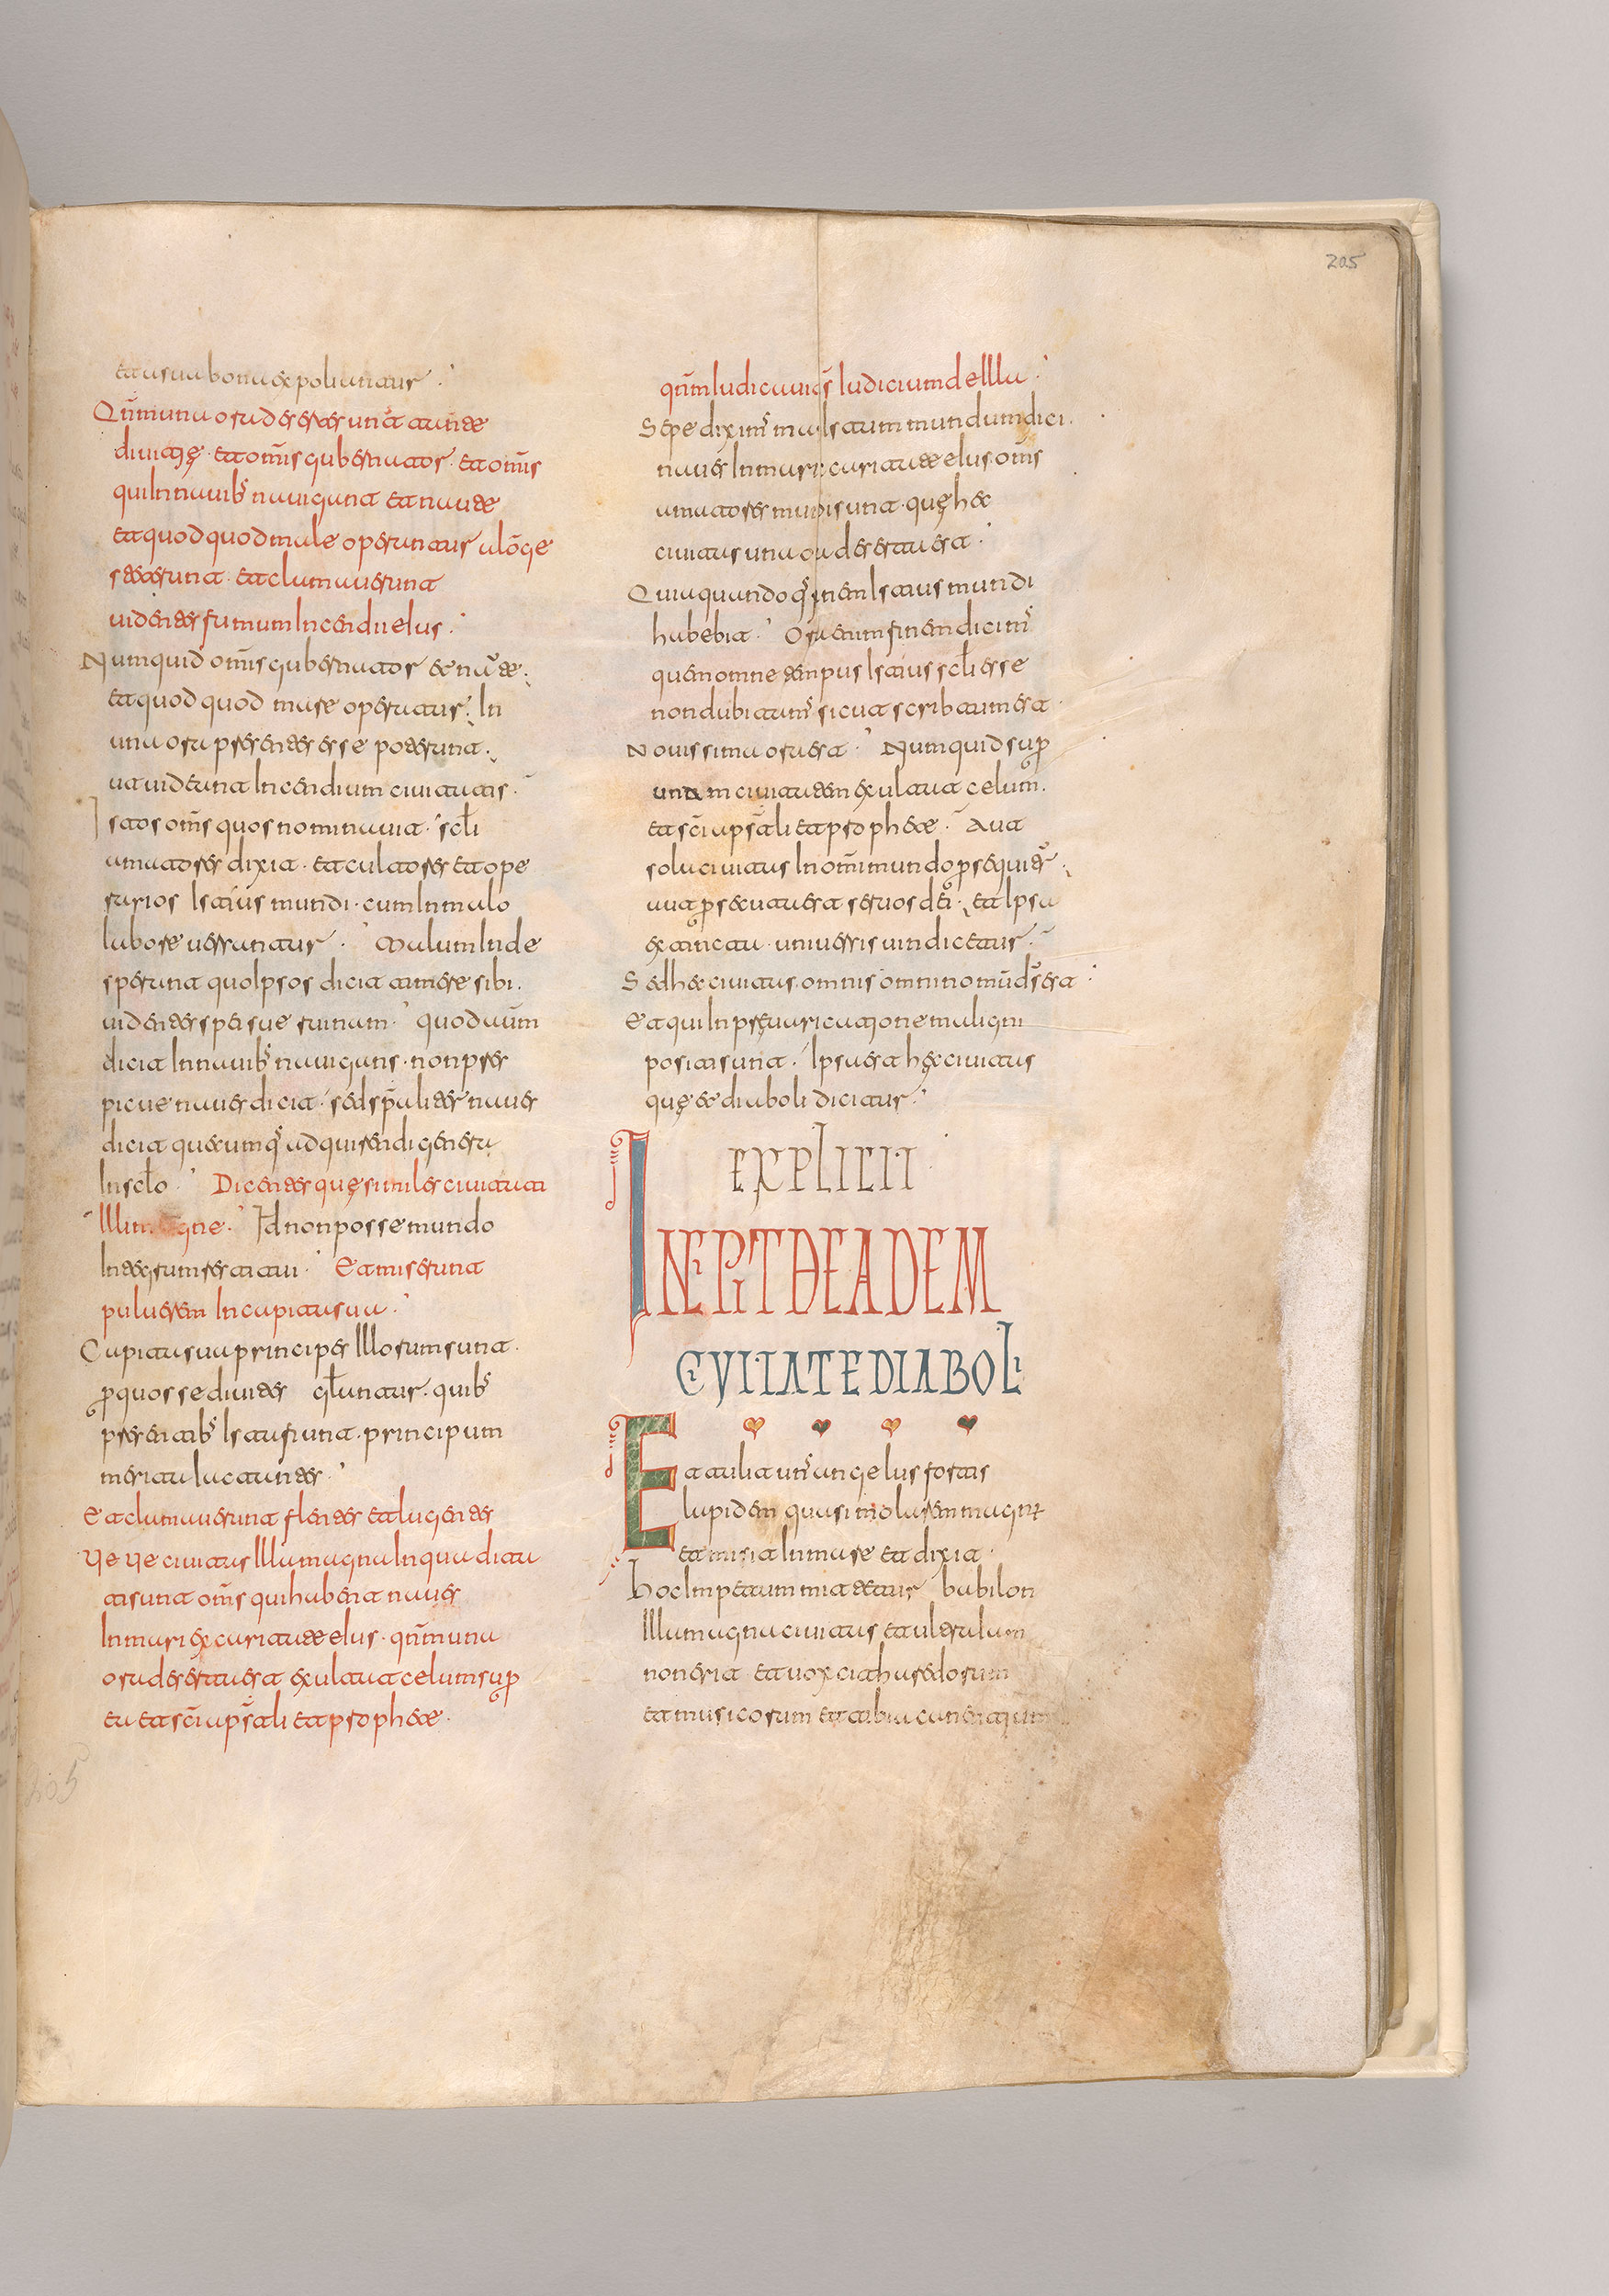 205
et a sua bona expoliantur.
Qnm una ora deserte sunt tante
diuitię. et omnis gubernator. et omnis
qui in nauibs nauigant et naute
et quod quod mare operantur a longe
steterunt. et clamauerunt
uidentes fumum incendii eius.
Numquid omnis gubernator et naute.
et quod quod mare operatur. In
una ora presentes esse poterunt.
ut uideant incendium ciuitatis.
Istos omns quos nominauit. scli
amatores dixit. et cultores et ope
rarios istius mundi. cum in malo
labore uersantur. Malum inde
sperant quo ipsos dicit timere sibi.
uidentes spei sue ruinam. quod autem
dicit in nauibs nauigans. non pres
picue naues dicit. sed spaliter naues
dicit quecumqs adquirendi genera
in sclo. Dicentes quę similes ciuitati
illi magne. Id non posse mundo
integrum restitui. Et miserunt
puluerem in capita sua.
Capita sua principes illorum sunt.
p quos se diuites glantur. quibs
presentibs ista fiunt. principum
merita luctantes.
Et clamauerunt flentes et lugentes
Ue ue ciuitas illa magna in qua dita
ti sunt omns qui habent naues
in mari ex caritate eius. qnm una
ora deserta est exulta celum sup
ea et sci apstali et prophete.
qnm iudicauit ds iudicium de illa.
Sepe diximus mulstum mundum dici.
naues in mari ex caritate eius. omns
amatores mundi sunt. quę hec
ciuitas una ora deserta est.
Quia quandoqs finem istius mundi
habebit. Ora enim finem dicimus
quem omne tempus istius scli esse
non dubitamus sicut scribtum est
Nouissima ora est. Numquid sup
unam ciuitatem exultat celum.
et sci apstali et prophete. Aut
sola ciuitas in omni mundo psequitur.
aut psecuta est seruos dei. et ipsa
extincta. uniuersis uindicetur.
Sed hec ciuitas. omnis omnino mundus est
et qui in preuaricatione maligni
positi sunt. Ipsa est hęc ciuitas
quę et diaboli dicitur.
EXPLICIT
INCPIT DE EADEM
CIVITATE DIABOLI
Et tulit uns angelus fortis
lapidem quasi molarem magnum
et misit in mare et dixit.
Hoc impetum mittetur babilon
illa magna ciuitas et ulterius iam
non erit et uox citharedorum
et musicorum et tibia canentium
205